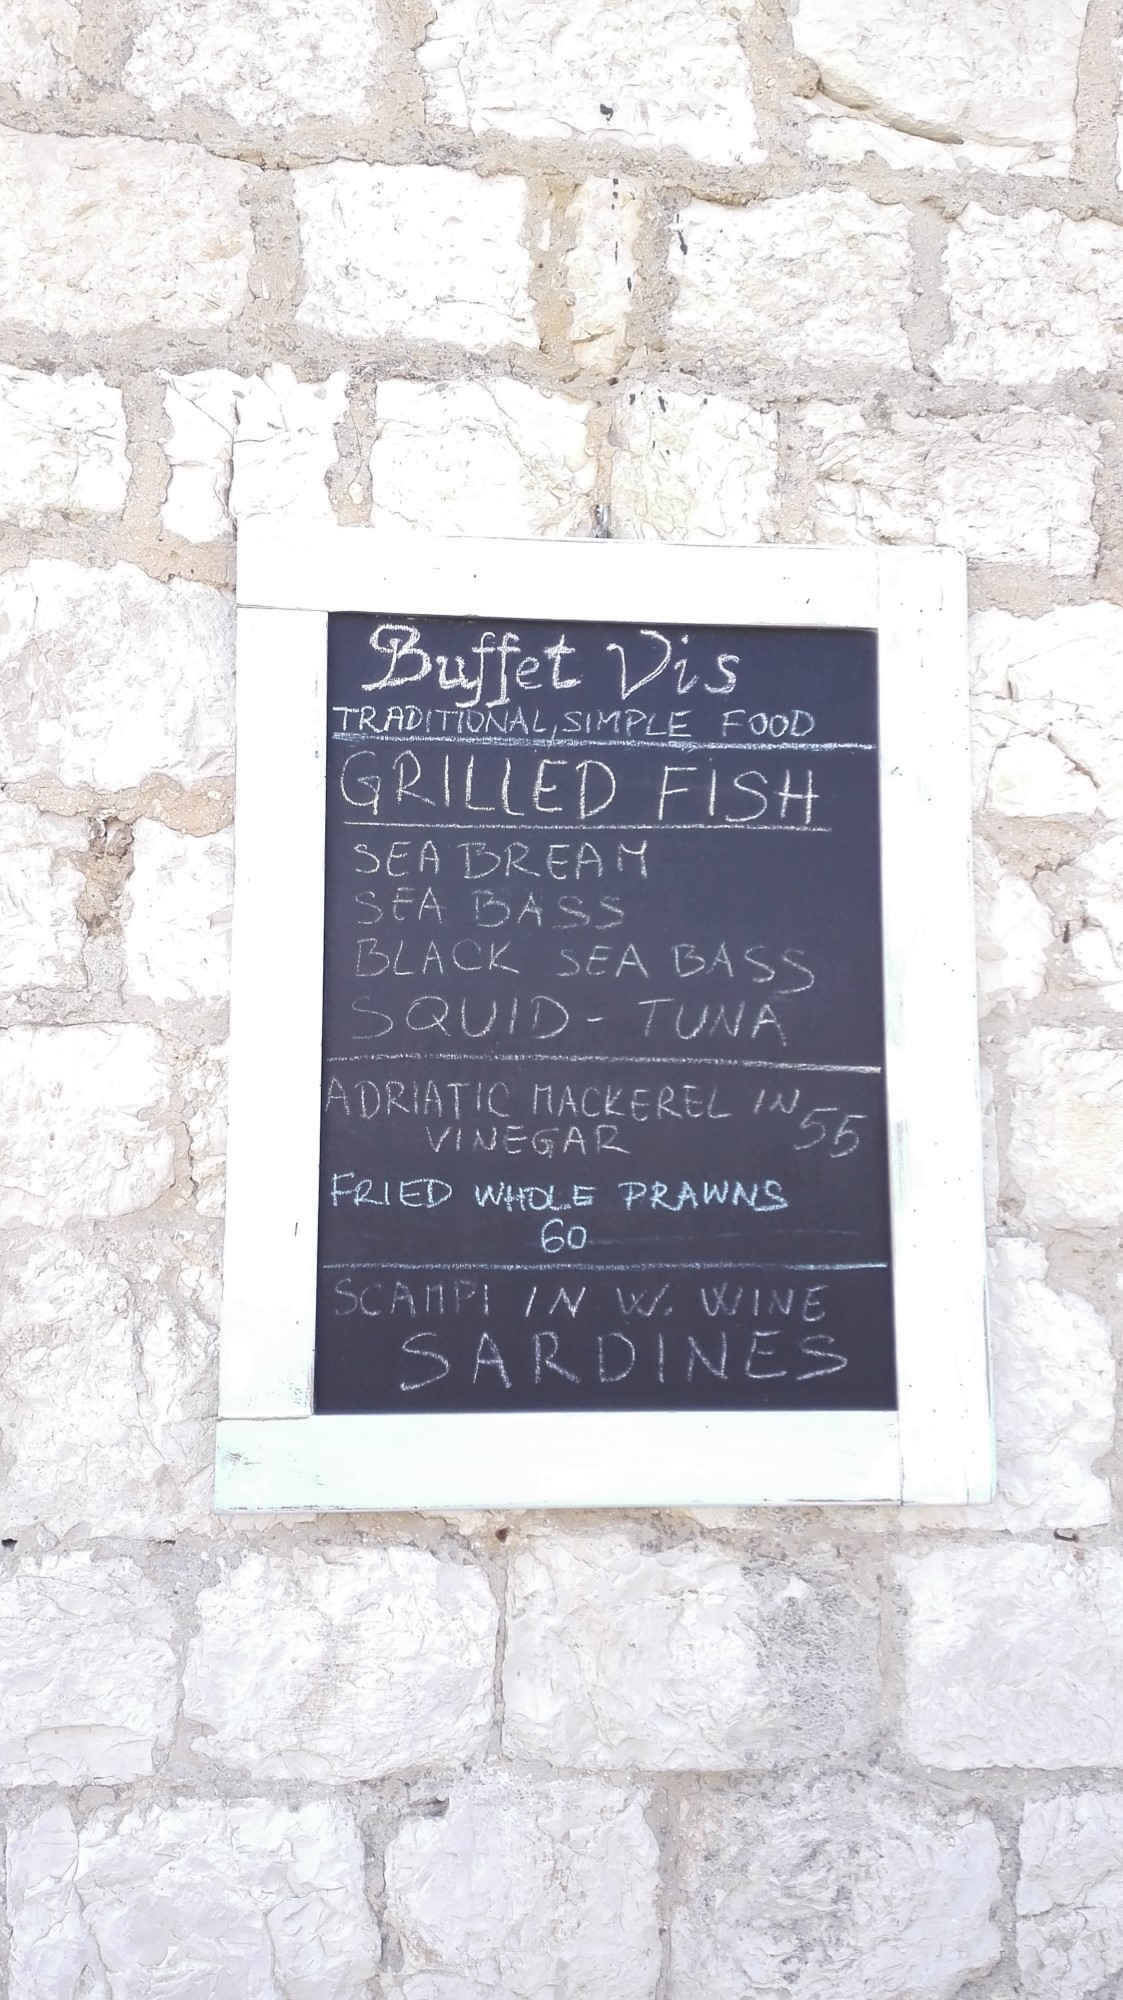 Buffet Vis
TRADITIONAL, SIMPLE FOOD
GRILLED FISH
SEA BREAM
SEA BASS
BLACK SEA BASS
SQUID - TUNA
ADRIATIC MACKEREL IN 55
VINEGAR
FRIED WHOLE PRAWNS
60
SCAMPI IN W. WINE
SARDINES